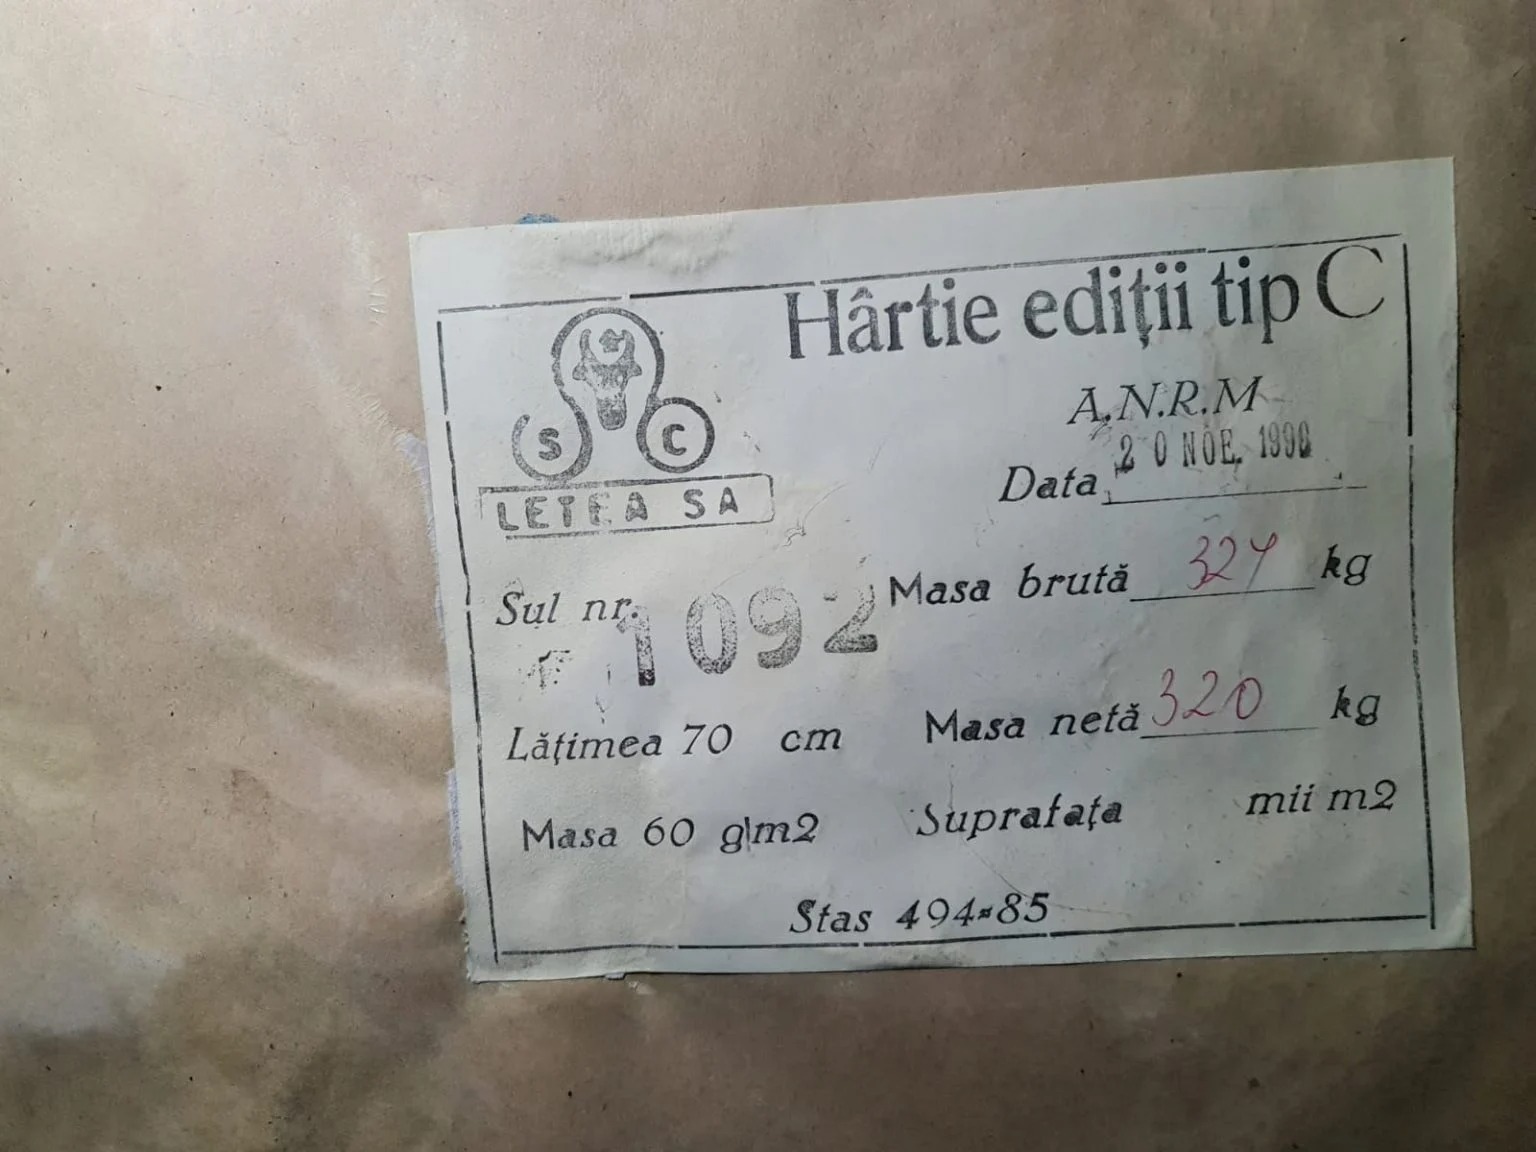 Hârtie ediţii tip C
S C
LETEA SA
A.N.R.M
Data 20 NOE. 1990
Sul nr. 1092
Masa brută 324 kg
Lăţimea 70 cm
Masa netă 320 kg
Masa 60 g|m2
Suprafaţa mii m2
Stas 494-85